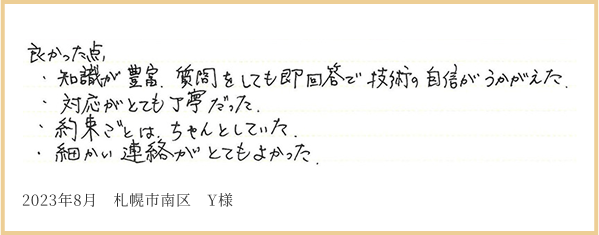 良かった点,
・知識が豊富.質問をしても即回答で技術の自信がうかがえた.
・対応がとても丁寧だった.
・約束ごとは.ちゃんとしていた.
・細かい連絡がとてもよかった.
2023年8月　札幌市南区　Y様